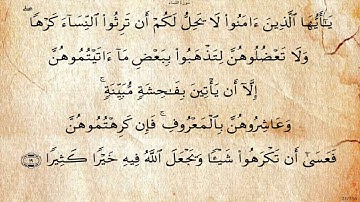 يَـٰٓأَيُّهَا ٱلَّذِينَ ءَامَنُوا۟ لَا يَحِلُّ لَكُمْ أَن تَرِثُوا۟ ٱلنِّسَآءَ كَرْهًا ۖ
وَلَا تَعْضُلُوهُنَّ لِتَذْهَبُوا۟ بِبَعْضِ مَآ ءَاتَيْتُمُوهُنَّ
إِلَّآ أَن يَأْتِينَ بِفَـٰحِشَةٍ مُّبَيِّنَةٍ ۚ
وَعَاشِرُوهُنَّ بِٱلْمَعْرُوفِ ۚ فَإِن كَرِهْتُمُوهُنَّ
فَعَسَىٰٓ أَن تَكْرَهُوا۟ شَيْـًٔا وَيَجْعَلَ ٱللَّهُ فِيهِ خَيْرًا كَثِيرًا ۝١٩